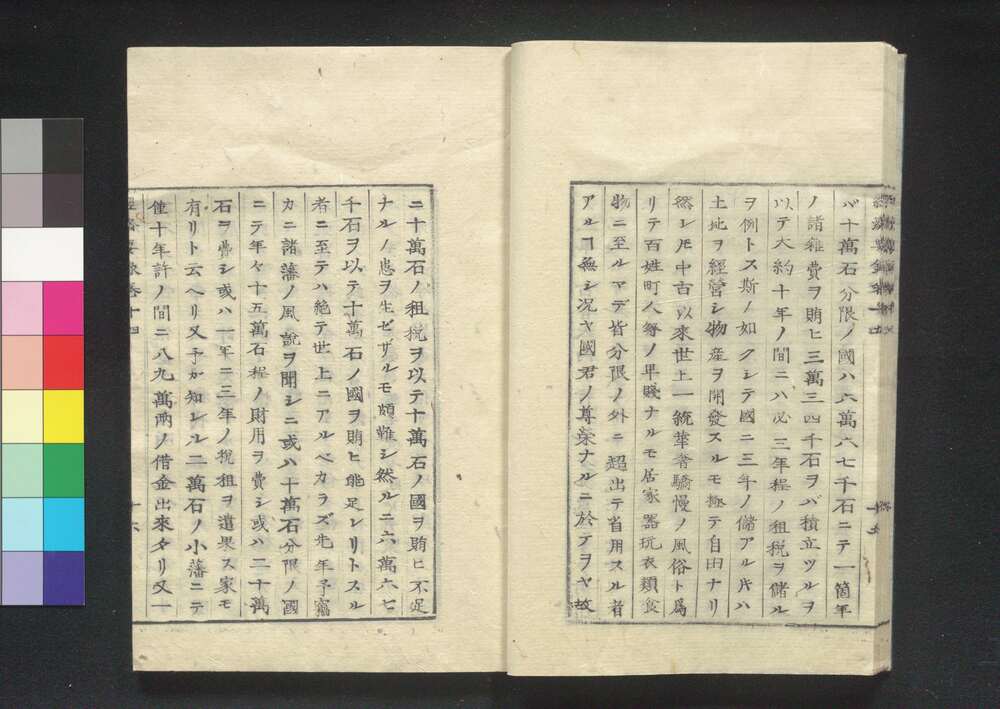 バ十萬石分限ノ國ハ六萬六七千石ニテ一箇年
ノ諸雜費ヲ賄ヒ三萬三四千石ヲバ積立ツルヲ
以テ大約十年ノ間ニハ必三年程ノ租税ヲ儲ル
ヲ例トス斯ノ如クシテ國ニ三年ノ儲アル片ハ
土地ヲ經營シ物産ヲ開發スルモ極テ自由ナリ
然レ𪜈中古以來世上一統華奢驕慢ノ風俗ト爲
リテ百姓町人等ノ卑賤ナルモ居家器玩衣類食
物ニ至ルマデ皆分限ノ外ニ超出テ省用スル者
アルヿ無シ况ヤ國君ノ尊榮ナルニ於テヲヤ故
ニ十萬石ノ租税ヲ以テ十萬石ノ國ヲ賄ヒ不足
ナルノ患ヲ生ゼザルモ頗難シ然ルニ六萬六七
千石ヲ以テ十萬石ノ國ヲ賄ヒ能足レリトスル
者ニ至テハ絶テ世上ニアルベカラズ先年予竊
カニ諸藩ノ風說ヲ聞シニ或ハ十萬石分限ノ國
ニテ年々十五萬石程ノ財用ヲ費シ或ハ二十萬
石ヲ費シ或ハ一年ニ三年ノ税租ヲ遣果ス家モ
有リト云ヘリ又予ガ知レル二萬石ノ小藩ニテ
僅十年許ノ間ニ八九萬兩ノ借金出來タリ又一
卷十四
十六